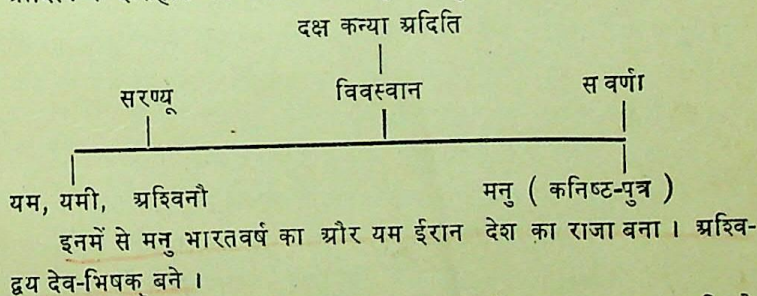 दक्ष कन्या अदिति
सरण्यू विवस्वान सवर्णा
यम, यमी, अश्विनौ मनु ( कनिष्ट-पुत्र )
इनमें से मनु भारतवर्ष का और यम ईरान देश का राजा बना । अश्वि-
द्वय देव-भिषक बने ।